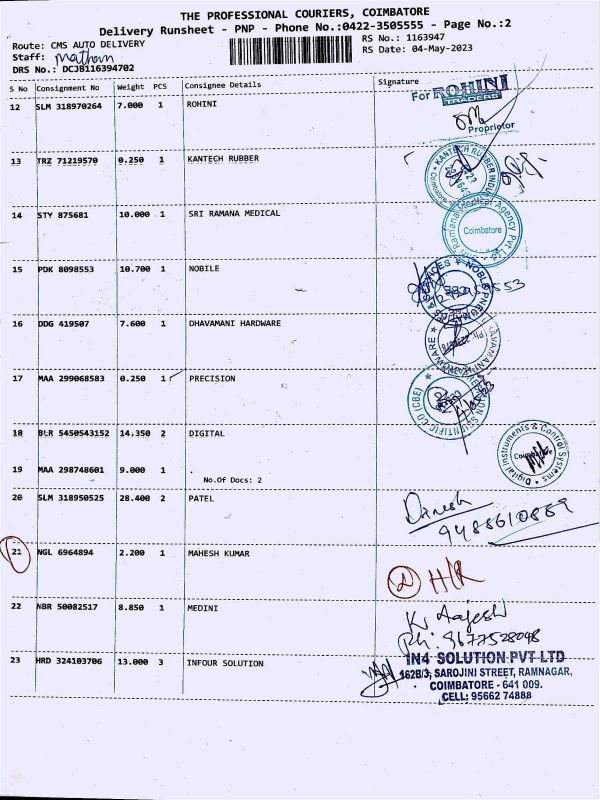 THE PROFESSIONAL COURIERS, COIMBATORE
Delivery Runsheet - PNP - Phone No.:0422-3505555 - Page No.:2
Route: CMS AUTO DELIVERY
RS No.: 1163947
Staff:
RS Date: 04-May-2023
DRS No.: DCJB116394702
S No Consignment No Weight PCS Consignee Details Signature
12 SLM 318970264 7.000 1 ROHINI
For ROHINI TRADERS
Proprietor
13 TRZ 71219570 0.250 1 KANTECH RUBBER
KANTECH RUBBER
14 STY 875681 10.000 1 SRI RAMANA MEDICAL
Ramana Medical Agency Pvt Ltd
Coimbatore
15 PDK 8098553 10.700 1 NOBILE
16 DDG 419507 7.600 1 DHAVAMANI HARDWARE
17 MAA 299068583 0.250 1 PRECISION
18 BLR 5450543152 14.350 2 DIGITAL
Digital Instruments & Control Systems
19 MAA 298748601 9.000 1
No.Of Docs: 2
20 SLM 318950525 28.400 2 PATEL
Dinesh
9488610889
21 NGL 6964894 2.200 1 MAHESH KUMAR
H/R
22 NBR 50082517 8.850 1 MEDINI
K. Rajesh
Ph: 9677528098
23 HRD 324103706 13.000 3 INFOUR SOLUTION
IN4 SOLUTION PVT LTD
162B/3, SAROJINI STREET, RAMNAGAR,
COIMBATORE - 641 009.
CELL: 95662 74888